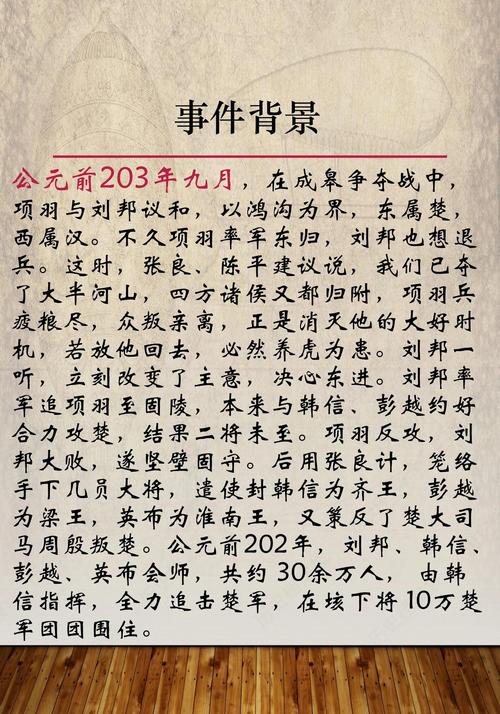 事件背景
公元前203年九月，在成皋争夺战中，
项羽与刘邦议和，以鸿沟为界，东属楚，
西属汉。不久项羽率军东归，刘邦也想退
兵。这时，张良、陈平建议说，我们已夺
了大半河山，四方诸侯又都归附，项羽兵
疲粮尽，众叛亲离，正是消灭他的大好时
机，若放他回去，必然养虎为患。刘邦一
听，立刻改变了主意，决心东进。刘邦率
军追项羽至固陵，本来与韩信、彭越约好
合力攻楚，结果二将未至。项羽反攻，刘
邦大败，遂坚壁固守。后用张良计，笼络
手下几员大将，遣使封韩信为齐王，彭越
为梁王，英布为淮南王，又策反了楚大司
马周殷叛楚。公元前202年，刘邦、韩信、
彭越、英布会师，共约 30余万人，由韩
信指挥，全力追击楚军，在垓下将 10万楚
军团团围住。